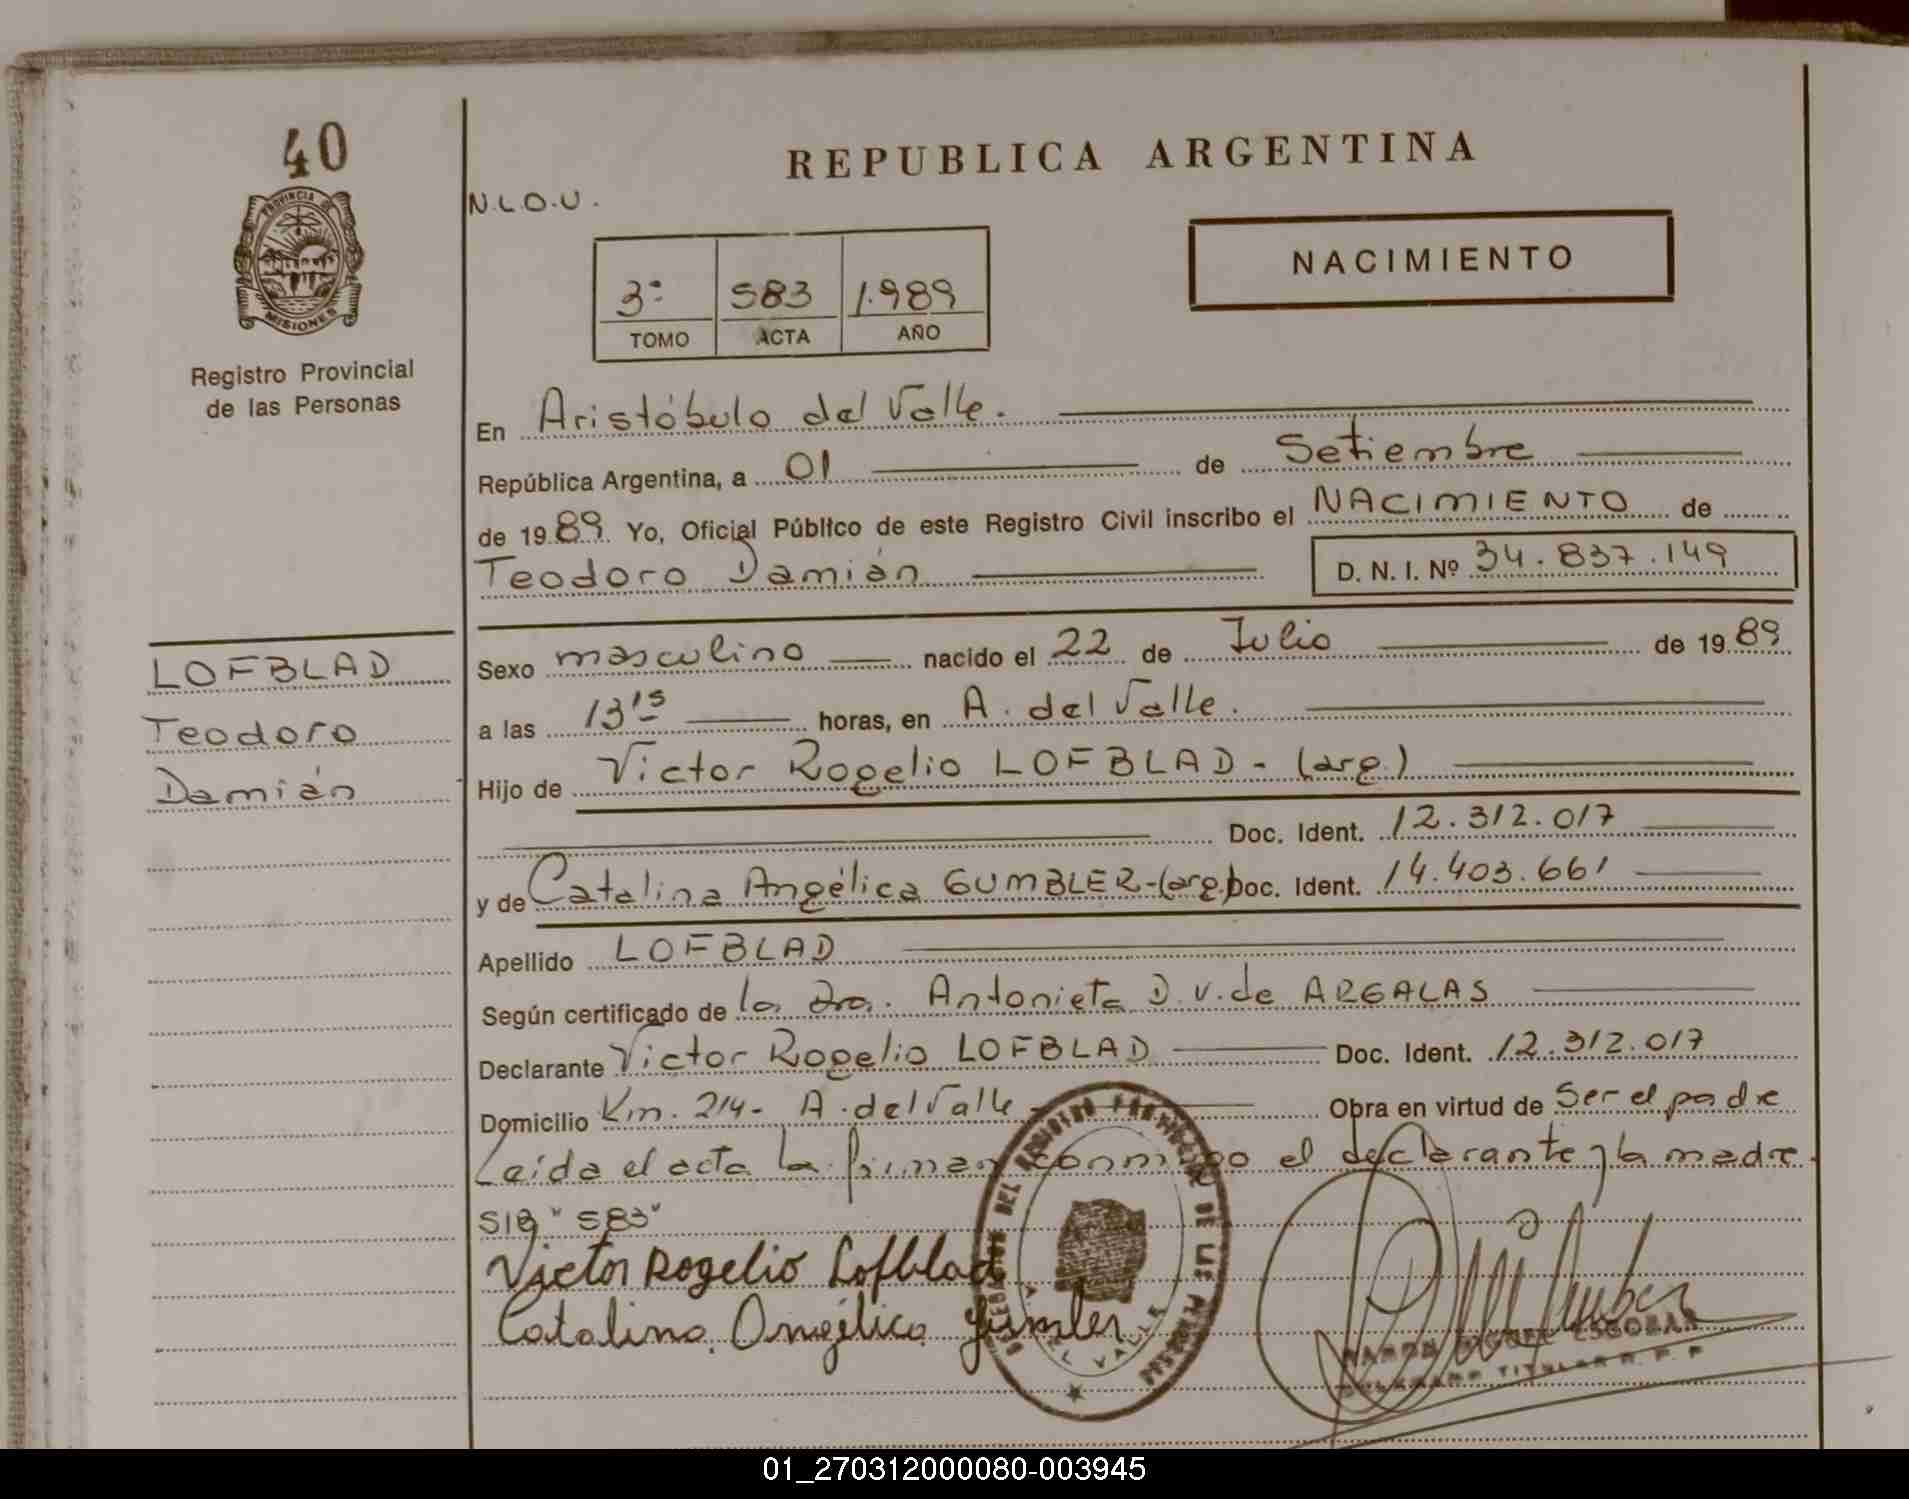 40
PROVINCIA DE
MISIONES
Registro Provincial
de las Personas
REPUBLICA ARGENTINA
N.L.O.U.
NACIMIENTO
3º 583 1.989
TOMO ACTA AÑO
En Aristóbulo del Valle.
República Argentina, a 01 de Setiembre
de 1989 Yo, Oficial Público de este Registro Civil inscribo el NACIMIENTO de
Teodoro Damián D. N. I. Nº 34.837.149
LOFBLAD
Teodoro
Damián
Sexo masculino nacido el 22 de Julio de 1989
a las 13¹⁵ horas, en A. del Valle.
Hijo de Victor Rogelio LOFBLAD - (arg.)
Doc. Ident. 12.312.017
y de Catalina Angélica GUMBLER-(arg.) Doc. Ident. 14.403.661
Apellido LOFBLAD
Según certificado de la Dra. Antonieta D.V. de ARGALAS
Declarante Victor Rogelio LOFBLAD Doc. Ident. 12.312.017
Domicilio Km. 214- A. del Valle - Obra en virtud de Ser el padre
Leída el acta la firman conmigo el declarante y la madre.
S/B "583"
Victor Rogelio Lofblad
Catalina Angélica
DEL REGISTRO PROVINCIAL DE LAS PERSONAS
A. DEL VALLE
RAMON MIGUEL ESCOBAR
TITULAR R. P. P.
01_270312000080-003945